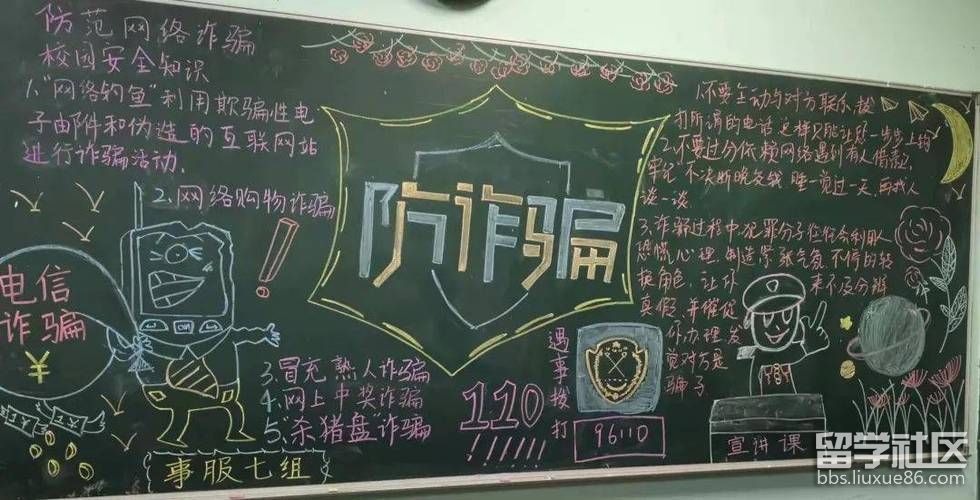 防范网络诈骗
校园安全知识
1."网络钓鱼"利用欺骗性电
子由件和伪造的互联网站
进行诈骗活动.
2.网络购物诈骗
电信
诈骗
¥
3.冒充熟人诈骗
4.网上中奖诈骗
5.杀猪盘诈骗
事服七组
防诈骗
110
遇事拨打
96110
1.不要主动与对方联系拨
打所谓的电话 这样只能让您一步步上钩
2.不要过分依赖网络遇到有人借钱,
牢记 不决断晚交钱 睡一觉过一天,再找人
谈一谈
3.诈骗过程中犯罪分子往往会利用人
恐慌心理,制造紧张气氛 不停的转
换角色,让你 来不及分辨
真假,并催促
你办理,发
觉对方是
骗子
宣讲课
留学社区
bbs.liuxue86.com